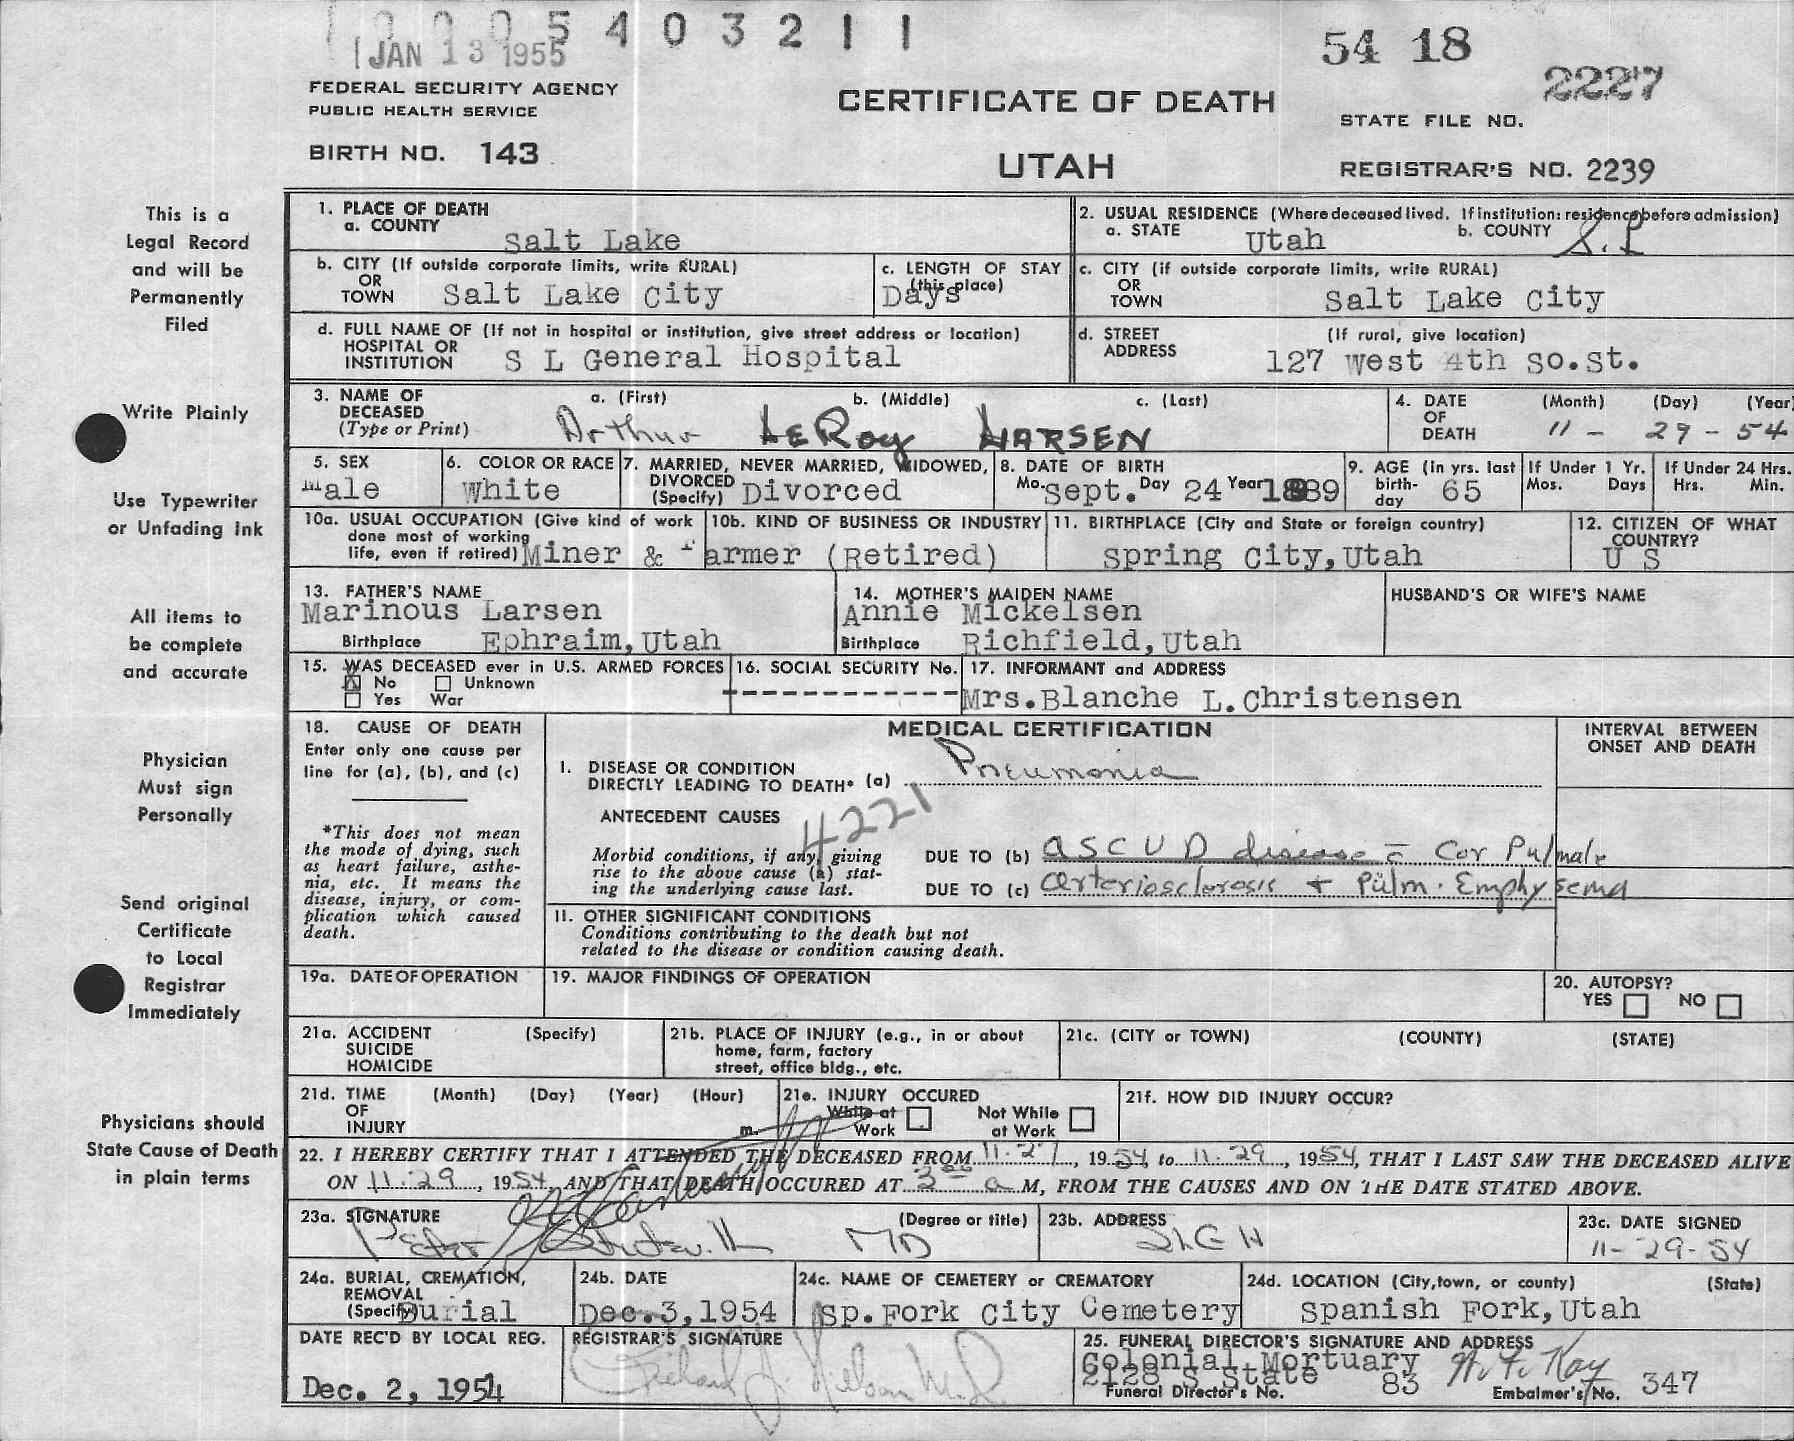 5403211
JAN 13 1955
54 18
2227
FEDERAL SECURITY AGENCY
PUBLIC HEALTH SERVICE
CERTIFICATE OF DEATH
STATE FILE NO.
BIRTH NO. 143
UTAH
REGISTRAR'S NO. 2239
This is a
Legal Record
and will be
Permanently
Filed
Write Plainly
Use Typewriter
or Unfading Ink
All items to
be complete
and accurate
Physician
Must sign
Personally
Send original
Certificate
to Local
Registrar
Immediately
Physicians should
State Cause of Death
in plain terms
1. PLACE OF DEATH
a. COUNTY Salt Lake
2. USUAL RESIDENCE (Where deceased lived. If institution: residence before admission)
a. STATE Utah b. COUNTY S. L
b. CITY (If outside corporate limits, write RURAL)
OR
TOWN Salt Lake City
c. LENGTH OF STAY
(this place)
Days
c. CITY (if outside corporate limits, write RURAL)
OR
TOWN Salt Lake City
d. FULL NAME OF (If not in hospital or institution, give street address or location)
HOSPITAL OR
INSTITUTION S L General Hospital
d. STREET (If rural, give location)
ADDRESS 127 West 4th So.St.
3. NAME OF a. (First) b. (Middle) c. (Last)
DECEASED
(Type or Print) Arthur LeRoy LARSEN
4. DATE (Month) (Day) (Year)
OF
DEATH 11 - 29 - 54
5. SEX
Male
6. COLOR OR RACE
White
7. MARRIED, NEVER MARRIED, WIDOWED,
DIVORCED
(Specify) Divorced
8. DATE OF BIRTH
Mo. Sept. Day 24 Year 1889
9. AGE (in yrs. last
birth-
day 65
If Under 1 Yr.
Mos. Days
If Under 24 Hrs.
Hrs. Min.
10a. USUAL OCCUPATION (Give kind of work
done most of working
life, even if retired) Miner & Farmer (Retired)
10b. KIND OF BUSINESS OR INDUSTRY
11. BIRTHPLACE (City and State or foreign country)
Spring City, Utah
12. CITIZEN OF WHAT
COUNTRY?
U S
13. FATHER'S NAME
Marinous Larsen
Birthplace Ephraim, Utah
14. MOTHER'S MAIDEN NAME
Annie Mickelsen
Birthplace Richfield, Utah
HUSBAND'S OR WIFE'S NAME
15. WAS DECEASED ever in U.S. ARMED FORCES
X No Unknown
Yes War
16. SOCIAL SECURITY No.
------------
17. INFORMANT and ADDRESS
Mrs. Blanche L. Christensen
18. CAUSE OF DEATH
Enter only one cause per
line for (a), (b), and (c)
*This does not mean
the mode of dying, such
as heart failure, asthe-
nia, etc. It means the
disease, injury, or com-
plication which caused
death.
MEDICAL CERTIFICATION
INTERVAL BETWEEN
ONSET AND DEATH
I. DISEASE OR CONDITION
DIRECTLY LEADING TO DEATH* (a) Pneumonia
4221
ANTECEDENT CAUSES
Morbid conditions, if any, giving
rise to the above cause (a) stat-
ing the underlying cause last.
DUE TO (b) ASCVD disease c̄ Cor Pulmale
DUE TO (c) Arteriosclerosis + Pulm. Emphysema
II. OTHER SIGNIFICANT CONDITIONS
Conditions contributing to the death but not
related to the disease or condition causing death.
19a. DATE OF OPERATION
19. MAJOR FINDINGS OF OPERATION
20. AUTOPSY?
YES NO
21a. ACCIDENT (Specify)
SUICIDE
HOMICIDE
21b. PLACE OF INJURY (e.g., in or about
home, farm, factory
street, office bldg., etc.
21c. (CITY or TOWN) (COUNTY) (STATE)
21d. TIME (Month) (Day) (Year) (Hour)
OF
INJURY m.
21e. INJURY OCCURED
While at
Work
Not While
at Work
21f. HOW DID INJURY OCCUR?
22. I HEREBY CERTIFY THAT I ATTENDED THE DECEASED FROM 11-27, 1954, to 11-29, 1954, THAT I LAST SAW THE DECEASED ALIVE
ON 11-29, 1954 AND THAT DEATH OCCURED AT 2 a M, FROM THE CAUSES AND ON THE DATE STATED ABOVE.
23a. SIGNATURE (Degree or title)
Peter MD
23b. ADDRESS
SLGH
23c. DATE SIGNED
11-29-54
24a. BURIAL, CREMATION,
REMOVAL
(Specify) Burial
24b. DATE
Dec. 3, 1954
24c. NAME OF CEMETERY or CREMATORY
Sp. Fork City Cemetery
24d. LOCATION (City, town, or county) (State)
Spanish Fork, Utah
DATE REC'D BY LOCAL REG.
Dec. 2, 1954
REGISTRAR'S SIGNATURE
Richard J. Nelson M.D.
25. FUNERAL DIRECTOR'S SIGNATURE AND ADDRESS
Colonial Mortuary
2128 S State 83
Funeral Director's No.
Kay
Embalmer's No. 347